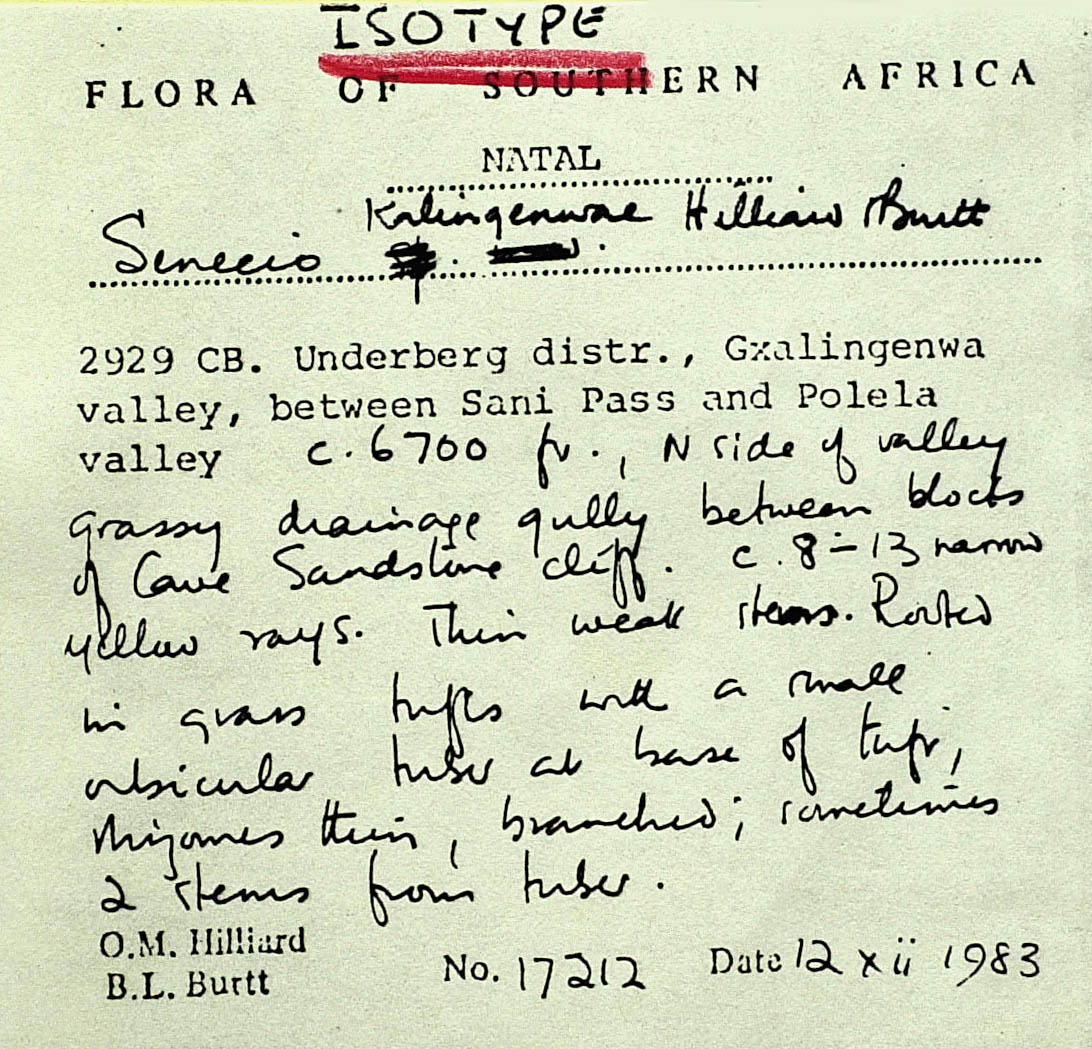 ISOTYPE
FLORA OF SOUTHERN AFRICA
NATAL
Kalingenwae Hilliard & Burtt
Senecio
2929 CB. Underberg distr., Gxalingenwa
valley, between Sani Pass and Polela
valley c. 6700 ft., N side of valley
grassy drainage gully between blocks
of Cave Sandstone cliff. c. 8-13 narrow
yellow rays. Thin weak stems. Rooted
in grass tufts with a small
orbicular tuber at base of tuft,
rhizomes thin, branched; sometimes
2 stems from tuber.
O.M. Hilliard
B.L. Burtt
No. 17212 Date 12 xii 1983